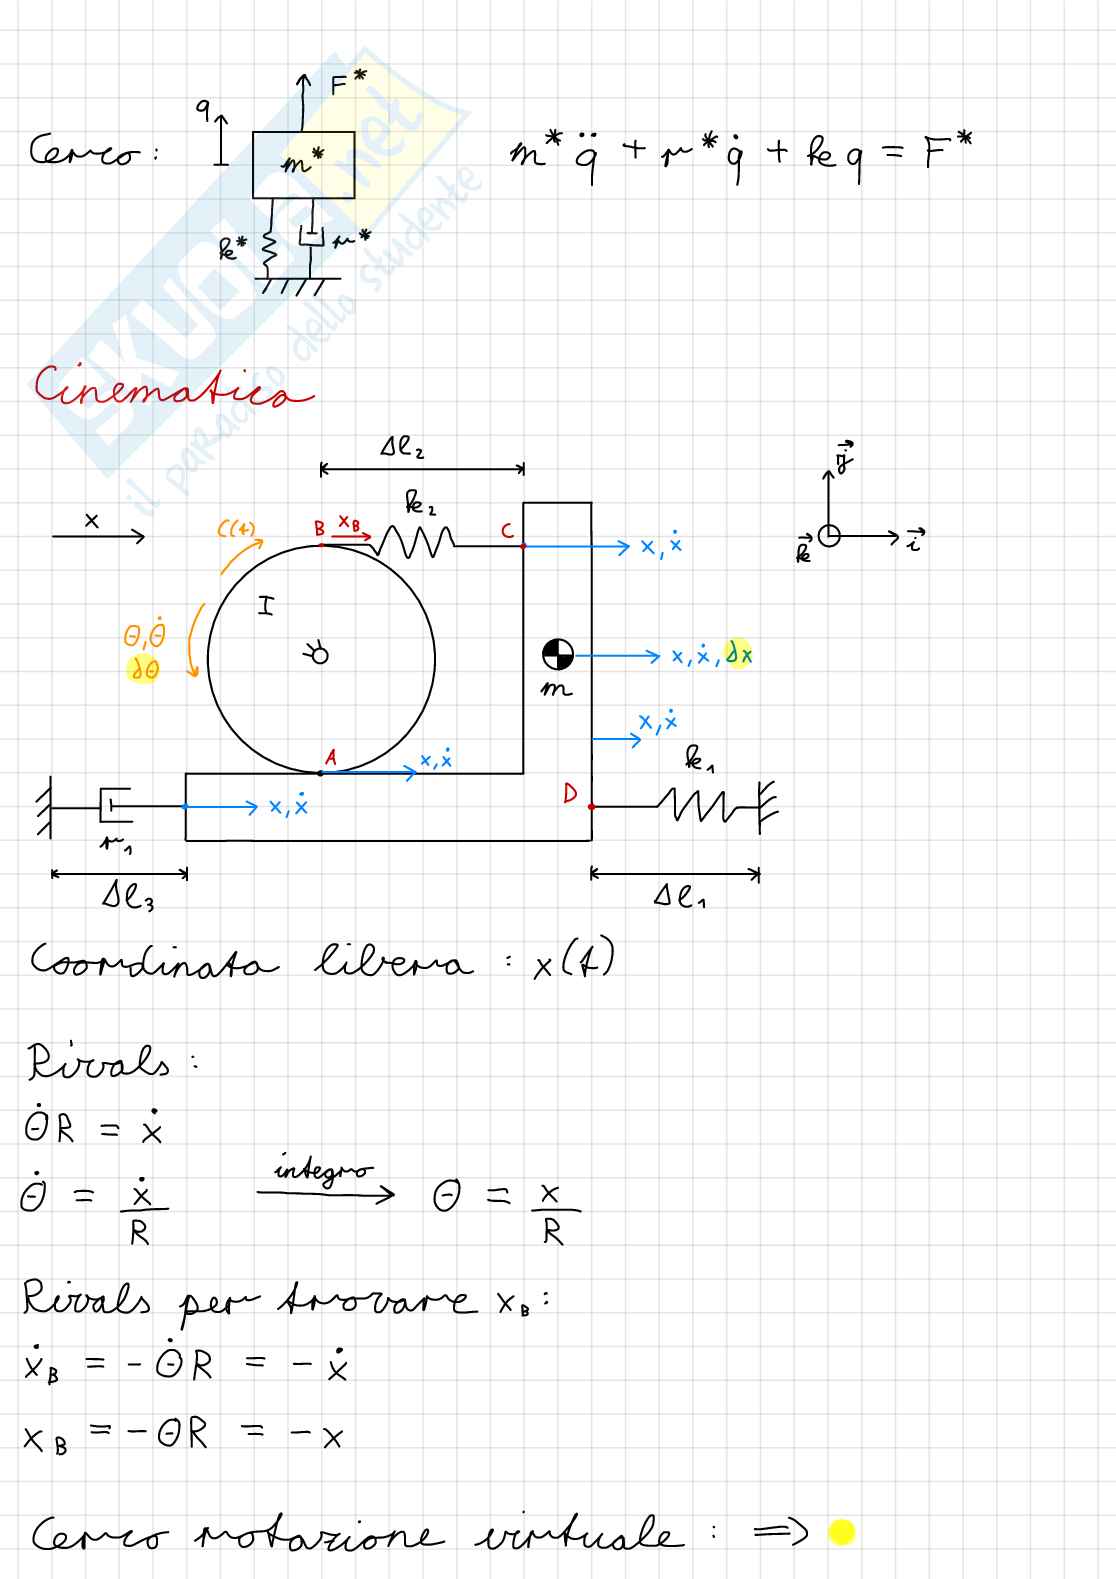 q
F*
Cerco :
m*
m* q̈ + μ* q̇ + k q = F*
k*
μ*
SKUOLA.net
il paradiso dello studente
Cinematica
Δl₂
x
C(t)
B
x_B
k₂
C
x, ẋ
j⃗
k⃗
i⃗
I
θ, θ̇
δθ
x, ẋ, δx
m
x, ẋ
A
x, ẋ
k₁
D
x, ẋ
μ₁
Δl₃
Δl₁
Coordinata libera : x(t)
Rivals :
θ̇R = ẋ
θ̇ = ẋ/R integro θ = x/R
Rivals per trovare x_B :
ẋ_B = - θ̇R = - ẋ
x_B = - θR = - x
Cerco rotazione virtuale : ⇒